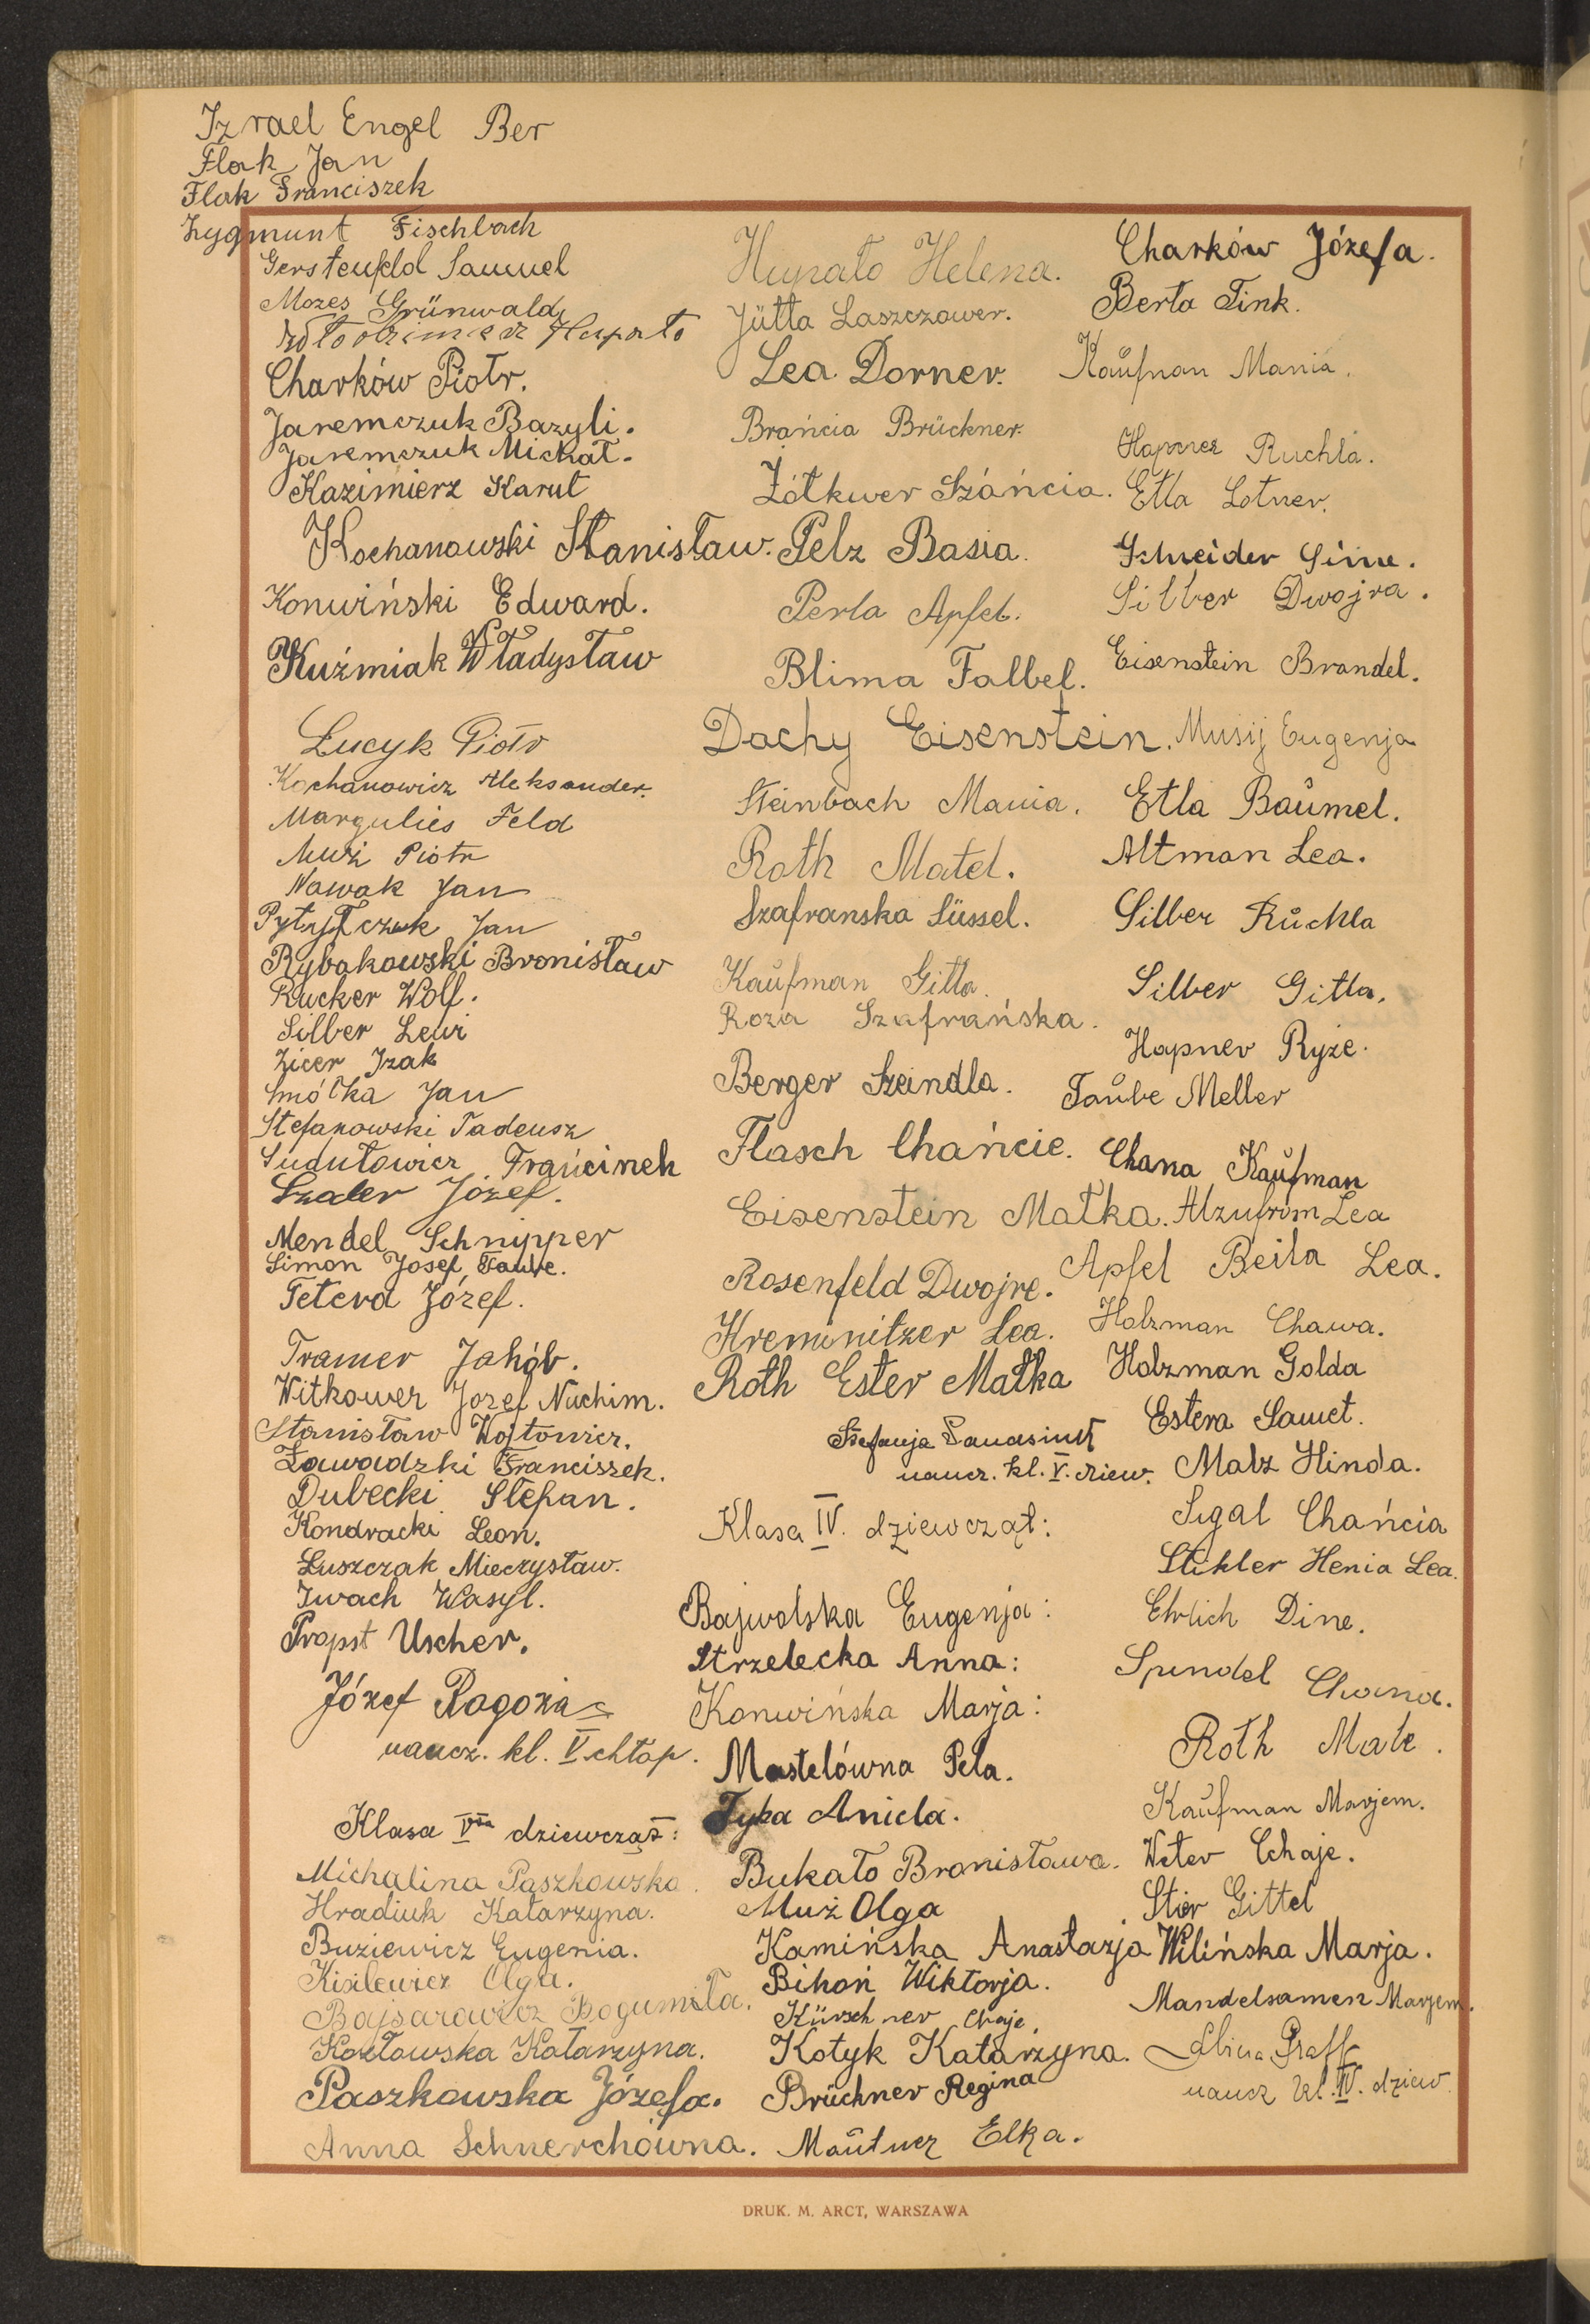 Izrael Engel Ber
Flak Jan
Flak Franciszek
Zygmunt Fischbach
Gerstenfeld Samuel
Mozes Grünwald
Włodzimierz Hupało
Charków Piotr.
Jaremczuk Bazyli.
Jaremczuk Michał.
Kazimierz Karut
Kochanowski Stanisław.
Konwiński Edward.
Kuźmiak Władysław
Łucyk Piotr
Kochanowicz Aleksander.
Margulies Feld
Muż Piotr
Nowak Jan
Jan
Rybakowski Bronisław
Rucker Wolf.
Silber Lewi
Zicer Izak
Smółka Jan
Stefanowski Tadeusz
Sudułowicz Frańcinek
Szaler Józef.
Mendel Schnipper
Simon Josef Taube.
Tetera Józef.
Tramer Jakób.
Witkower Jozef Nuchim.
Stanisław Wojtowicz.
Zawadzki Franciszek.
Dubecki Stefan.
Kondracki Leon.
Łuszczak Mieczysław.
Iwach Wasyl.
Propst Uscher.
Józef Ragoża
naucz. kl. V. chłop.
Klasa Vta dziewcząt:
Michalina Paszkowska.
Hradiuk Katarzyna.
Buziewicz Eugenia.
Kisilewicz Olga.
Bajsarowicz Bogumiła.
Kozłowska Katarzyna.
Paszkowska Józefa.
Anna Schnerchówna.
Hupało Helena.
Jütta Laszczower.
Lea Dorner.
Brańcia Brückner.
Żółkwer Száńcia.
Pelz Basia.
Perla Apfel.
Blima Falbel.
Dachy Eisenstein.
Steinbach Mania.
Roth Matel.
Szafranska Süssel.
Kaufman Gitla.
Roza Szafrańska.
Berger Szeindla.
Flasch Chańcie.
Eisenstein Małka.
Rosenfeld Dwojre.
Kremnitzer Lea.
Roth Ester Małka
Stefanja
naucz. kl. V. dziew.
Klasa IV. dziewcząt:
Bajwolska Eugenja:
Strzelecka Anna:
Konwińska Marja:
Mastelówna Pela.
Tyka Aniela.
Bukało Bronisława.
Muż Olga
Kamińska Anastazja
Bihoń Wiktorja.
Kürschner Chaje.
Kotyk Katarzyna.
Brüchner Regina
Maŭtner Elka.
Charków Józefa.
Berta Fink.
Kaŭfman Mania.
Hapner Ruchla.
Etla Lotner.
Schneider Sime.
Silber Dwojra.
Eisenstein Brandel.
Musij Eugenja
Etla Baŭmel.
Altman Lea.
Silber Rŭchla
Silber Gitla.
Hapner Ryże.
Taŭbe Meller
Chana Kaŭfman
Alzufrom Lea
Apfel Beila Lea.
Holzman Chawa.
Holzman Golda
Estera Samet.
Malz Hinda.
Sigal Chańcia
Stikler Henia Lea.
Ehrlich Dine.
Spindel Chana.
Roth Male.
Kaŭfman Marjem.
Weter Chaje.
Stior Gittel
Wilińska Marja.
Mandelsamen Marjem.
naucz kl. IV. dziew.
DRUK. M. ARCT, WARSZAWA